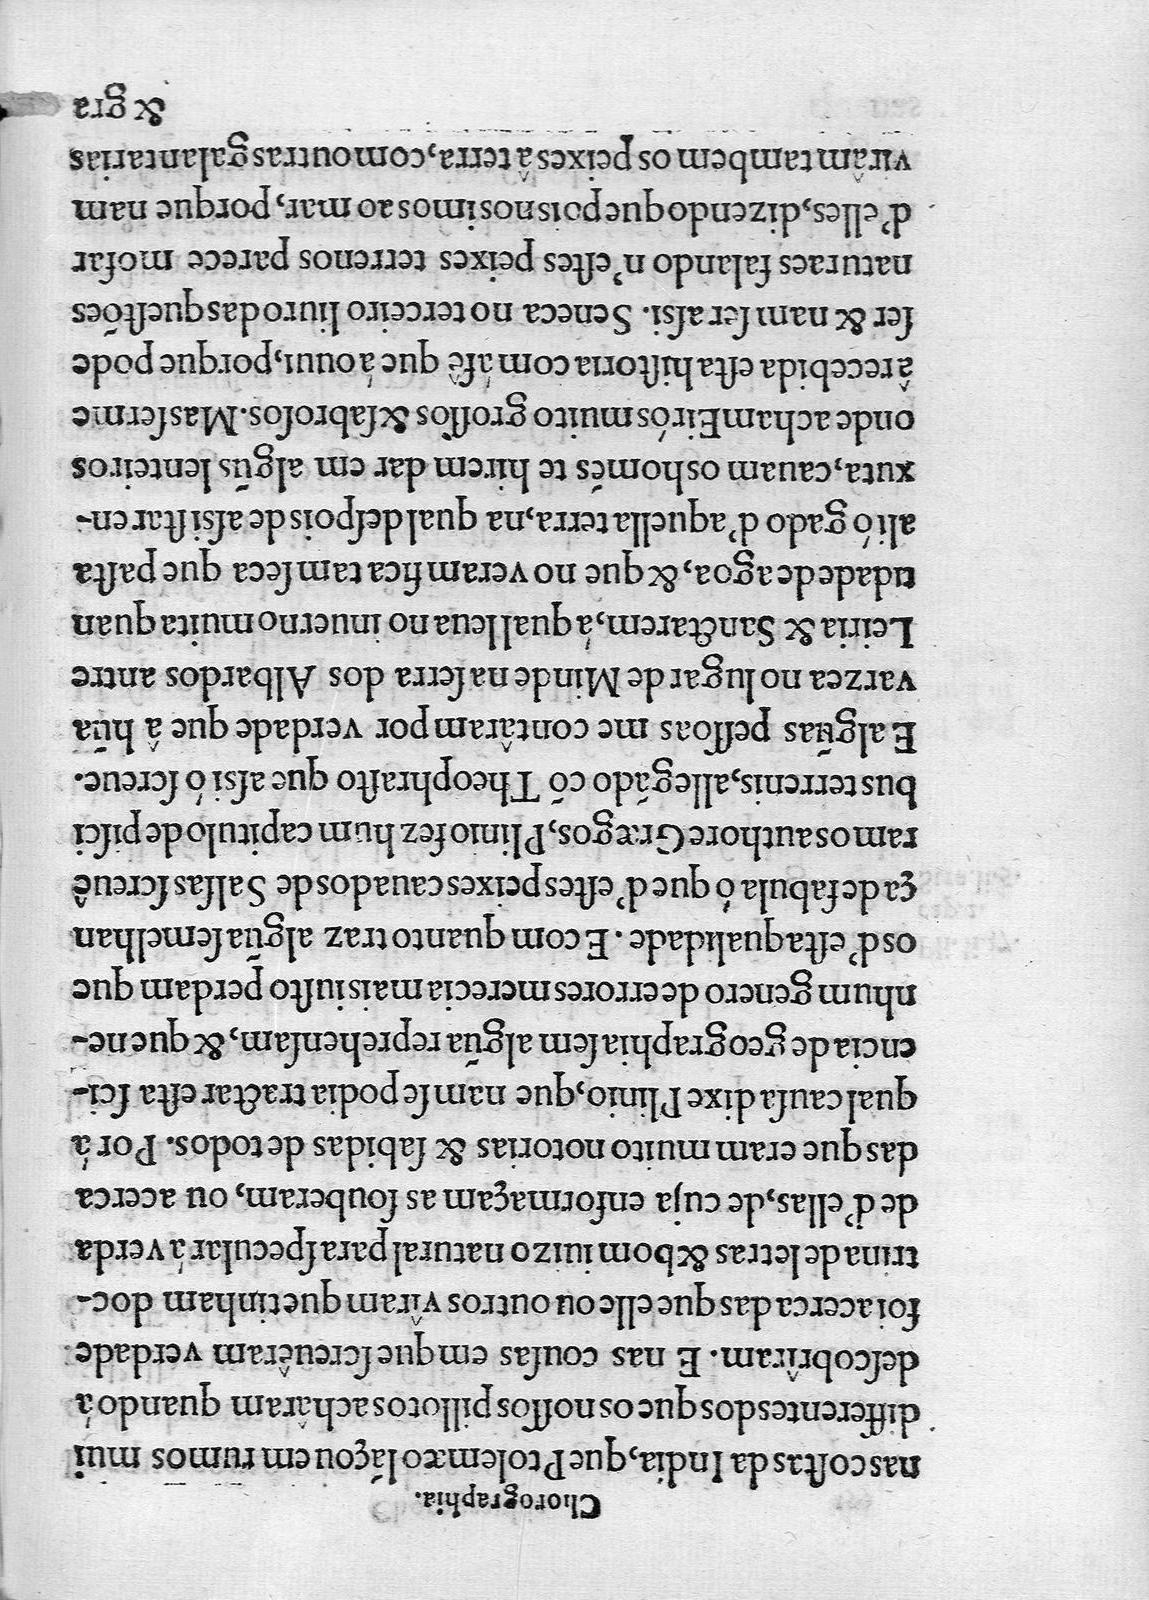 Chorographia.
nas coſtas da India, que Ptolemæo lãçou em rumos mui
differentes dos que os noſſos pillotos achâram quando á
deſcobrîram. E nas couſas em que ſcreuêram verdade
foi acerca das que elle ou outros vîram que tinham doc-
trina de letras & bom iuizo natural para ſpecular á verda
de d'ellas, de cuja enformaçam as ſouberam, ou acerca
das que eram muito notorias & ſabidas de todos. Por á
qual cauſa dixe Plinio, que nam ſe podia tractar eſta ſci-
encia de geographia ſem algũa reprehenſam, & que ne-
nhum genero de errores merecia mais iuſto perdam que
os d'eſta qualidade. E com quanto traz algũa ſemelhan
ça de fabula ó que d'eſtes peixes cauados de Salſas ſcreuê
ram os authore Græços, Plinio fez hum capitulo de piſci
bus terrenis, allegãdo cõ Theophraſto que aſsi ó ſcreue.
E algũas peſſoas me contâram por verdade que â hũa
varzea no lugar de Minde na ſerra dos Albardos antre
Leiria & Sanctarem, á qual leua no inuerno muita quan
tidade de agoa, & que no veram fica tam ſeca que paſta
ali ó gado d'aquella terra, na qual deſpois de aſsi ſtar en-
xuta, cauam os homẽs te hirem dar em algũs lenteiros
onde acham Eirós muito groſſos & ſabroſos. Mas ſerme
â recebida eſta hiſtoria com á fê que á ouui, porque pode
ſer & nam ſer aſsi. Seneca no terceiro liuro das queſtões
naturaes falando n'eſtes peixes terrenos parece mofar
d'elles, dizendo que pois nos imos ao mar, porque nam
virâm tambem os peixes â terra, com outras galantarias
& gra